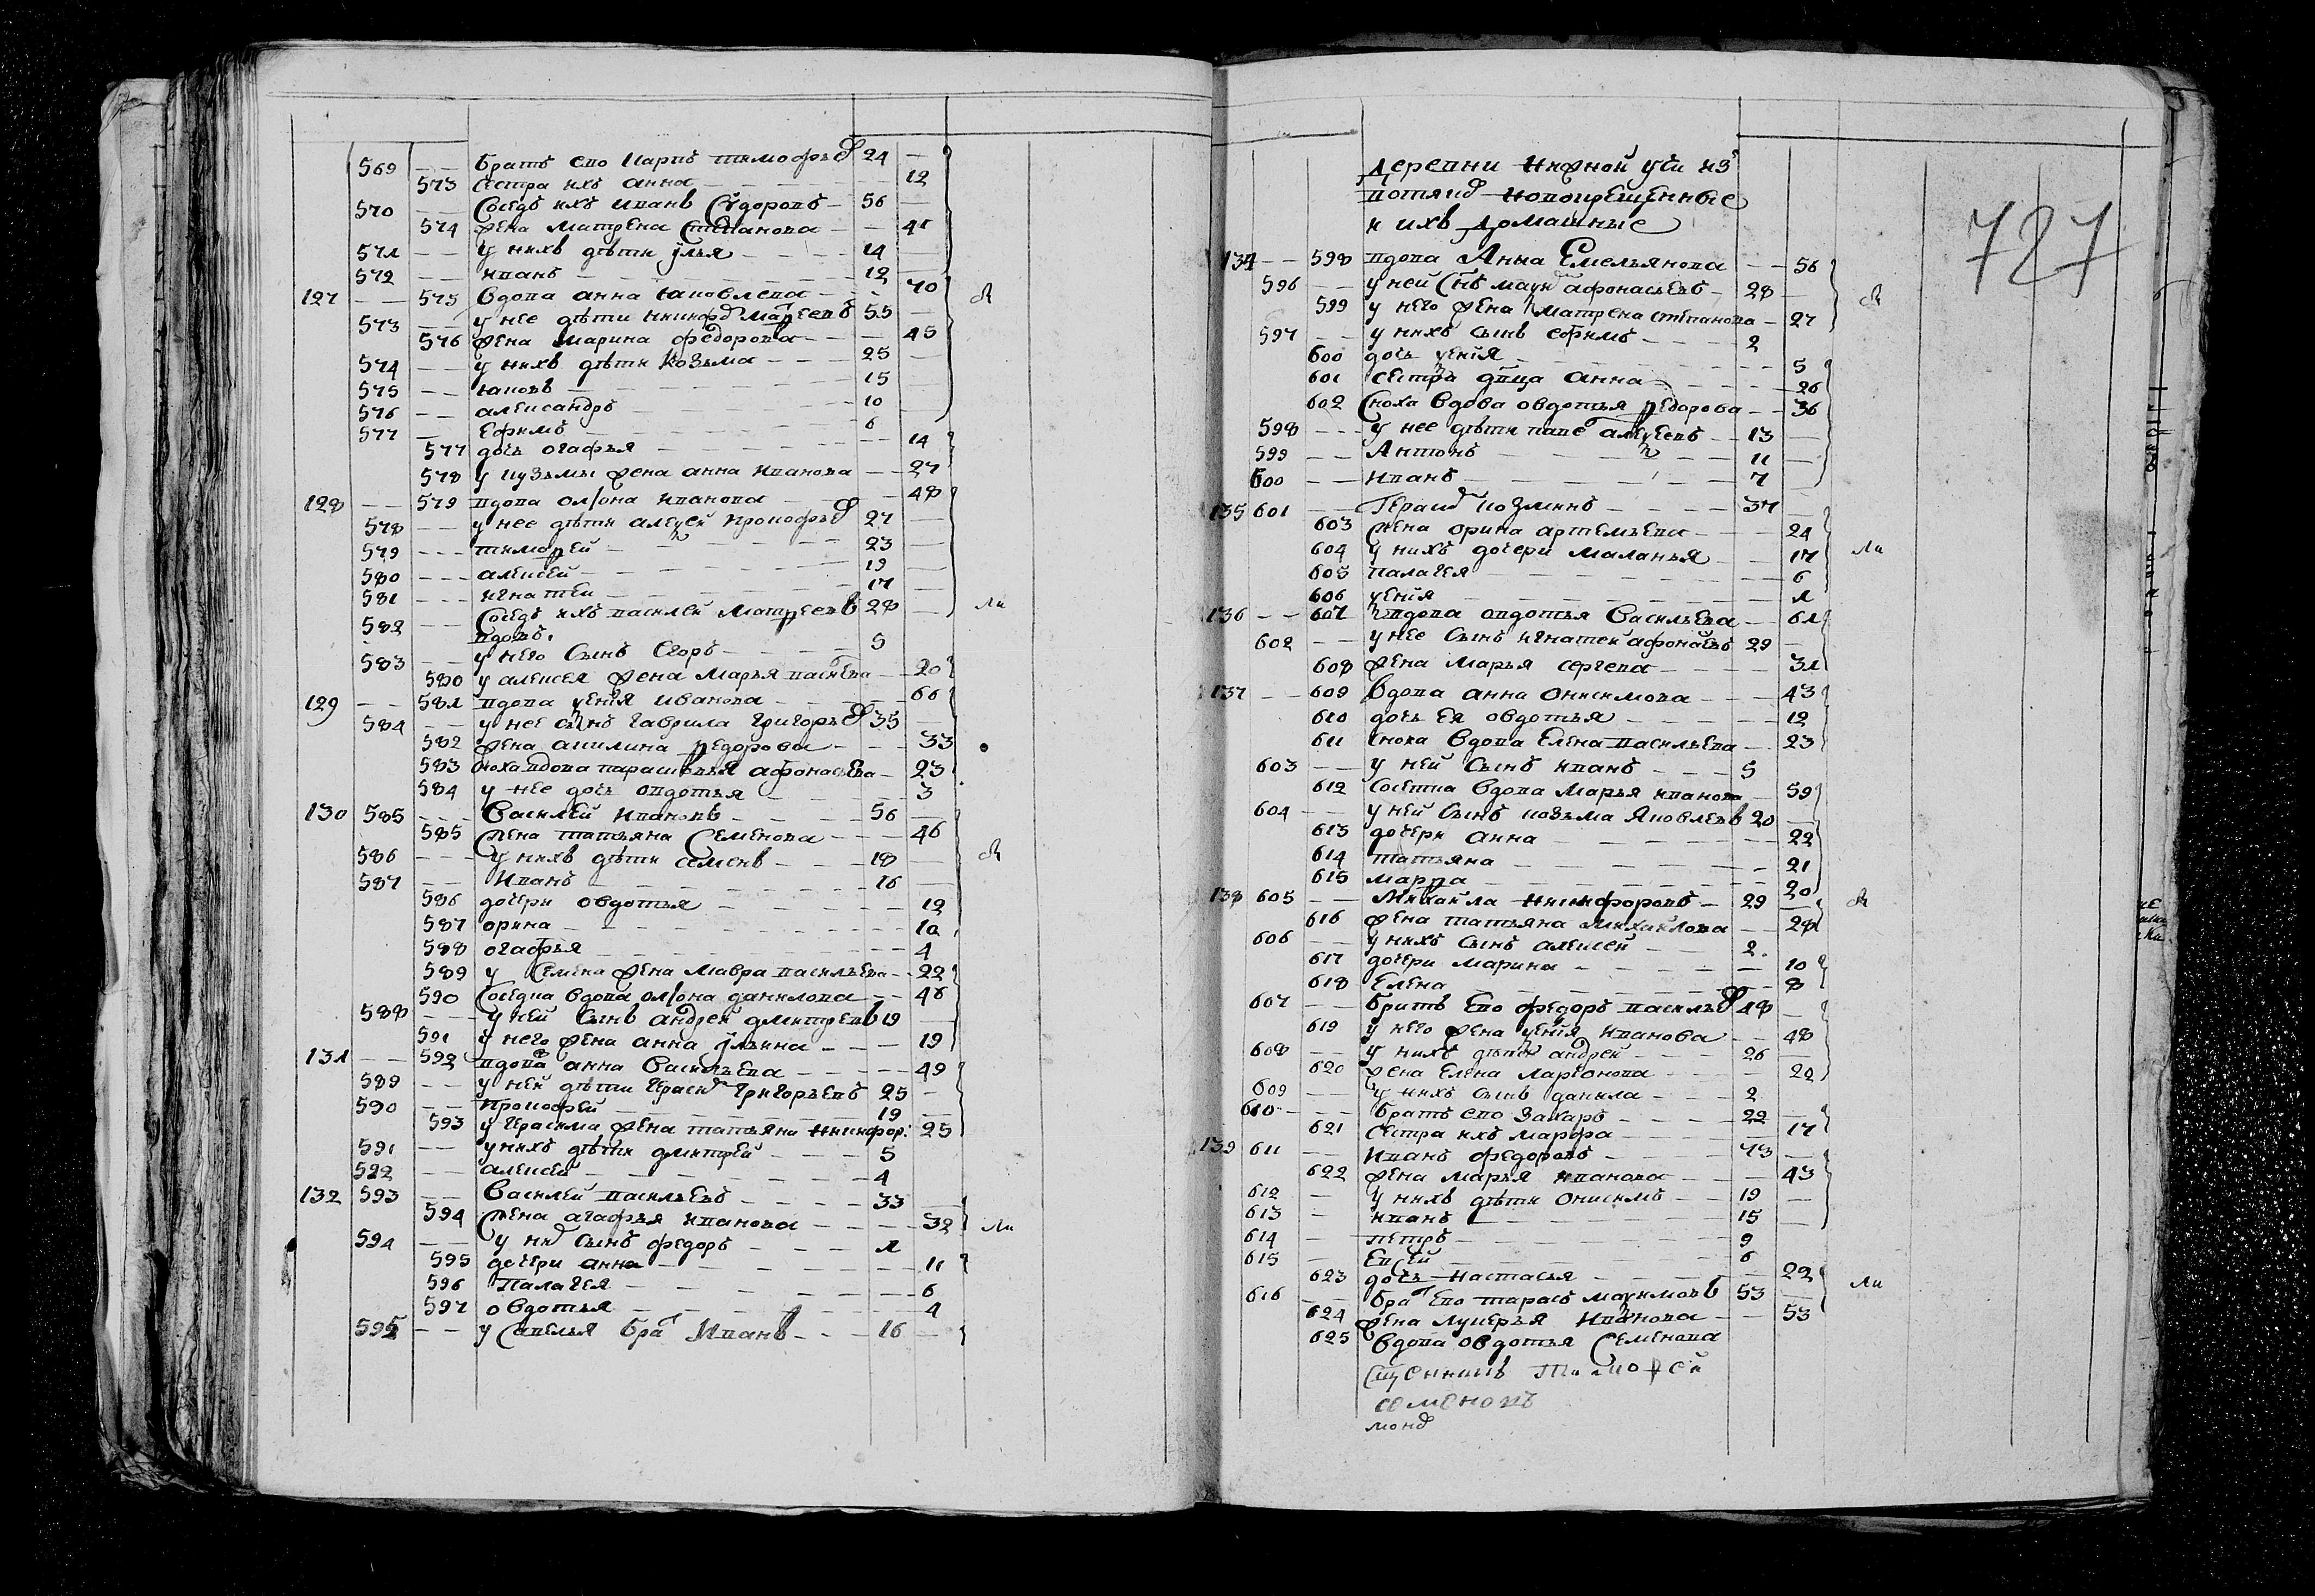 569 — братъ ево Карпъ тимофѣе 24 —
573 сестра ихъ анна — 12
570 — Соседъ ихъ иванъ Сидоровъ 56 —
574 жена матрена Степанова — 41
571 — у нихъ дѣти илья 14
572 — иванъ 12
127 — 575 вдова анна яковлева — 70
573 — у нее дѣти никифо матвеевъ 55 —
576 жена марина федорова — 45
574 — у нихъ дѣти козьма 25 —
575 — яковъ 15
576 — александръ 10
577 — Ефимъ 6
577 дочь огафья — 14
578 у кузьмы жена анна иванова — 27
128 — 579 вдова олiона иванова — 48
578 — у нее дѣти алеѯей прокофье 27 —
579 — тимофей 23 —
580 — алексей 19 —
581 — игнатей 17 —
582 — Соседъ ихъ василей матвеевъ 28 —
вдовъ.
583 — у него сынъ Егоръ 5
580 у алексея жена марья васильева — 20
129 — 581 вдова ѯения иванова — 66
584 — у нее сынъ гаврила григорье 35 —
582 жена акилина федорова — 33
583 сноха вдова парасковья афонасьева — 23
584 у нее дочь овдотья — 3
130 585 — Василей Ивановъ 56 —
585 жена татьяна Семенова — 46
586 — у нихъ дѣти семенъ 18 —
587 — Иванъ 16 —
586 дочери овдотья — 12
587 орина — 10
588 огафья — 4
589 у Семена жена мавра васильева — 22
590 соседка вдова олiона данилова — 46
588 — у ней сынъ андрей дмитревъ 19 —
591 у него жена анна ильина — 19
131 — 592 вдова анна Васильева — 49
589 — у ней дѣти гераси григорьевъ 25 —
590 — прокофей 19 —
593 у герасима жена татьяна никифор: 25
591 — у нихъ дѣти дмитрей 5
592 — алексей 4
132 593 — Василей васильевъ 33 —
594 жена агафья иванова — 32
594 — у ни сынъ федоръ 1
595 дочери анна — 11
596 Палагея — 6
597 овдотья — 4
595 — у савелья бра Иванъ 16 —
727
деревни нижной учи из
вотяко новокрещенные
и ихъ домашные
134 — 598 вдова Анна Емельянова — 56
596 — у ней сынъ маѯи афонасьевъ 28 —
599 у него жена матрена степанова — 27
597 — у нихъ сынъ ефимъ 2
600 дочь ѯения — 5
601 сестра дѣвца анна — 26
602 Сноха вдова овдотья федорова — 36
598 — у нее дѣти паве алеѯеевъ 13 —
599 — Антонъ 11 —
600 — Иванъ 7 —
135 601 — Гераси козминъ 37 —
603 жена орина артемьева — 24
604 у нихъ дочери маланья — 17
605 палагея — 6
606 ѯения — 1
136 — 607 вдова овдотья Васильева — 61
602 — у нее сынъ игнатеи афонасьевъ 29 —
608 жена марья сергеева — 31
137 — 609 вдова анна онисимова — 43
610 дочь ея овдотья — 12
611 сноха вдова елена васильева — 23
603 — у ней сынъ иванъ 5
612 соседка вдова марья иванова — 59
604 — у ней сынъ козьма яковлевъ 20 —
613 дочери анна — 22
614 татьяна — 21
615 марфа — 20
138 605 — михаила никифоровъ 29 —
616 жена татьяна михайлова — 28
606 — у нихъ сынъ алексей 2
617 дочери марина — 10
618 Елена — 8
607 — братъ Ево федоръ василье 48 —
619 у него жена ѯения иванова — 48
608 — у нихъ дѣти андрей 26 —
620 жена Елена ларионова — 22
609 — у нихъ сынъ данила 2
610 — братъ ево захаръ 22 —
621 сестра ихъ марфа — 17
139 611 — иванъ федоровъ 43 —
622 жена марья иванова — 43
612 — у нихъ дѣти онисимъ 19 —
613 — иванъ 15 —
614 — петръ 9
615 — Евсей 6
623 дочь настасья — 22
616 — бра Ево тарасъ маѯимовъ 53 —
624 жена лукерья иванова — 53
625 вдова овдотья Семенова
Сщенникъ Тимофей
семеновъ